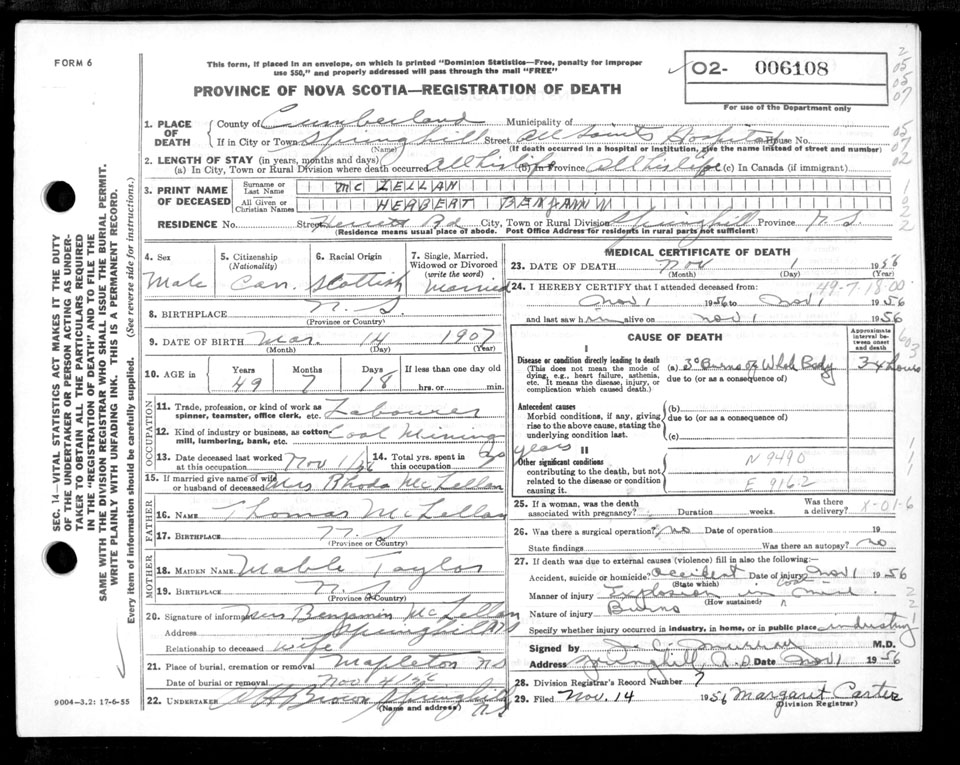 FORM 6
This form, if placed in an envelope, on which is printed "Dominion Statistics—Free, penalty for improper
use $50," and properly addressed will pass through the mail "FREE"
02- 006108
For use of the Department only
PROVINCE OF NOVA SCOTIA—REGISTRATION OF DEATH
1. PLACE OF DEATH County of Cumberland Municipality of
If in City or Town Springhill Street All Saints Hospital House No.
(Name) (If death occurred in a hospital or institution, give the name instead of street and number)
2. LENGTH OF STAY (in years, months and days)
(a) In City, Town or Rural Division where death occurred All his life (b) In Province All his life (c) In Canada (if immigrant)
3. PRINT NAME OF DECEASED Surname or Last Name McLELLAN
All Given or Christian Names HERBERT BENJAMIN
RESIDENCE No. Street Herrett Rd City, Town or Rural Division Springhill Province N.S.
(Residence means usual place of abode. Post Office Address for residents in rural parts not sufficient)
4. Sex Male
5. Citizenship (Nationality) Can.
6. Racial Origin Scottish
7. Single, Married, Widowed or Divorced (write the word) Married
8. BIRTHPLACE N.S.
(Province or Country)
9. DATE OF BIRTH Mar. 14 1907
(Month) (Day) (Year)
10. AGE in Years 49 Months 7 Days 18 If less than one day old hrs. or min.
OCCUPATION
11. Trade, profession, or kind of work as spinner, teamster, office clerk, etc. Labourer
12. Kind of industry or business, as cotton mill, lumbering, bank, etc. Coal Mining
13. Date deceased last worked at this occupation Nov 1/56
14. Total yrs. spent in this occupation 30 years
15. If married give name of wife or husband of deceased Mrs Rhoda McLellan
FATHER
16. NAME Thomas McLellan
17. BIRTHPLACE N.S
(Province or Country)
MOTHER
18. MAIDEN NAME Mable Taylor
19. BIRTHPLACE N.S
(Province or Country)
20. Signature of informant Mrs Benjamin McLellan
Address Springhill N.S
Relationship to deceased wife
21. Place of burial, cremation or removal Mapleton N.S
Date of burial or removal Nov 4/56
22. UNDERTAKER Brown Springhill N.S
(Name and address)
MEDICAL CERTIFICATE OF DEATH
23. DATE OF DEATH Nov 1 1956
(Month) (Day) (Year)
24. I HEREBY CERTIFY that I attended deceased from: 49-7-18-00
Nov 1 1956 to Nov 1 1956
and last saw him alive on Nov 1 1956
CAUSE OF DEATH
Approximate interval between onset and death
I
Disease or condition directly leading to death
(This does not mean the mode of dying, e.g., heart failure, asthenia, etc. It means the disease, injury, or complication which caused death.)
(a) 3° Burns of Whole Body
due to (or as a consequence of)
Antecedent causes
Morbid conditions, if any, giving rise to the above cause, stating the underlying condition last.
(b)
due to (or as a consequence of)
(c)
II
Other significant conditions
contributing to the death, but not related to the disease or condition causing it.
N 9490
E 916.2
25. If a woman, was the death associated with pregnancy? Duration weeks. Was there a delivery? X-01-6
26. Was there a surgical operation? no Date of operation 19
State findings Was there an autopsy? no
27. If death was due to external causes (violence) fill in also the following:
Accident, suicide or homicide? Accident Date of injury Nov 1 1956
(State which)
Manner of injury Explosion in coal mine
(How sustained)
Nature of injury Burns
Specify whether injury occurred in industry, in home, or in public place industry
Signed by J. C. Murray M.D.
Address Springhill, N.S Date Nov 1 1956
28. Division Registrar's Record Number 7
29. Filed Nov. 14 1956 Margaret Carter
(Division Registrar)
SEC. 14—VITAL STATISTICS ACT MAKES IT THE DUTY
OF THE UNDERTAKER OR PERSON ACTING AS UNDERTAKER TO OBTAIN ALL THE PARTICULARS REQUIRED
IN THE "REGISTRATION OF DEATH" AND TO FILE THE
SAME WITH THE DIVISION REGISTRAR WHO SHALL ISSUE THE BURIAL PERMIT.
WRITE PLAINLY WITH UNFADING INK. THIS IS A PERMANENT RECORD.
Every item of information should be carefully supplied. (See reverse side for instructions.)
9004-3.2: 17-6-55